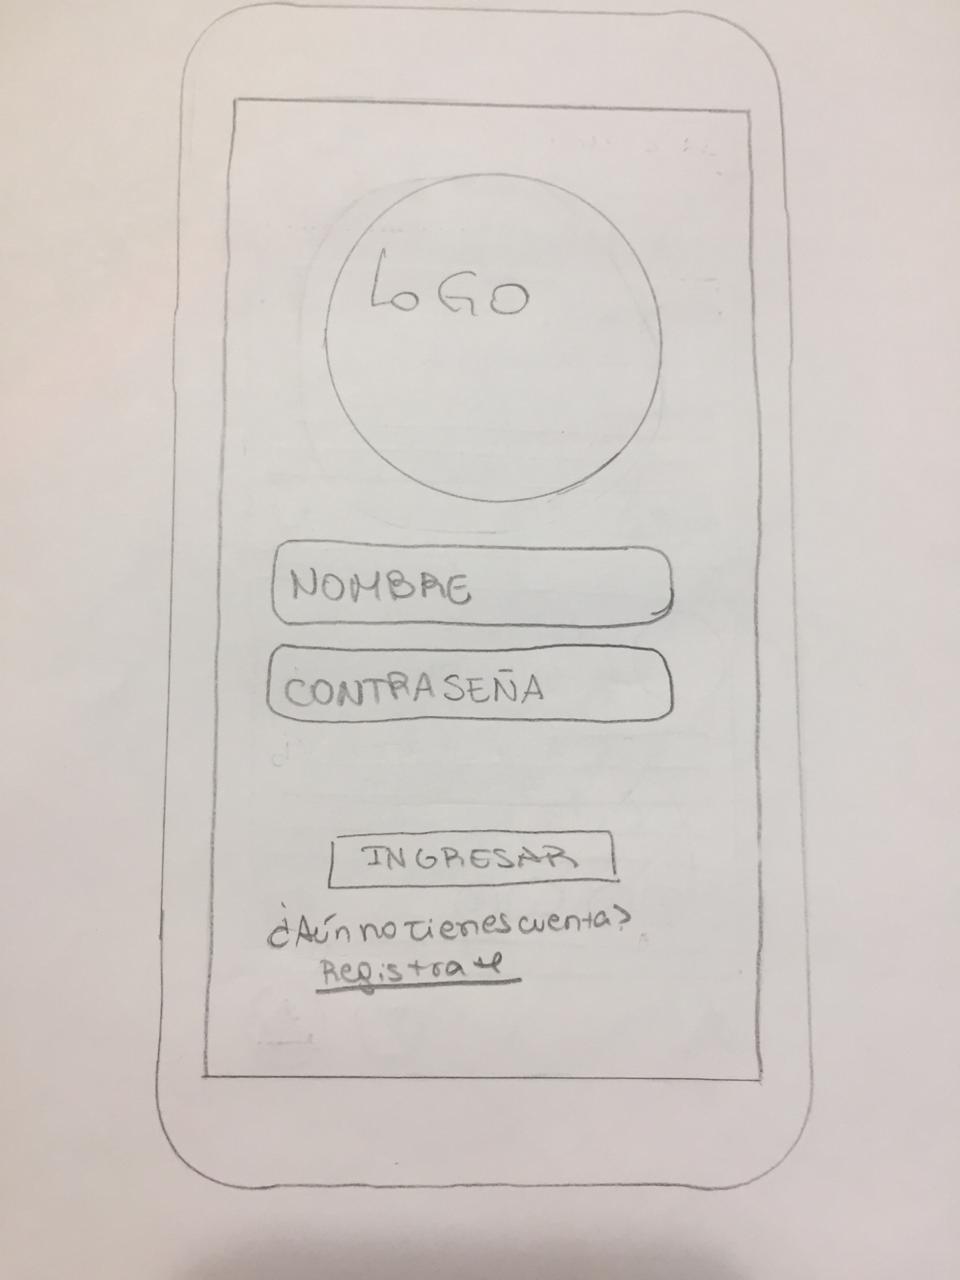 LOGO
NOMBRE
CONTRASEÑA
INGRESAR
¿Aún no tienes cuenta?
Registrate